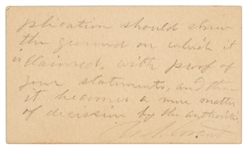 plication should show
the ground on which it
is claimed, with proof of
your statements, and then
it becomes a mere matter
of decision by the authorities